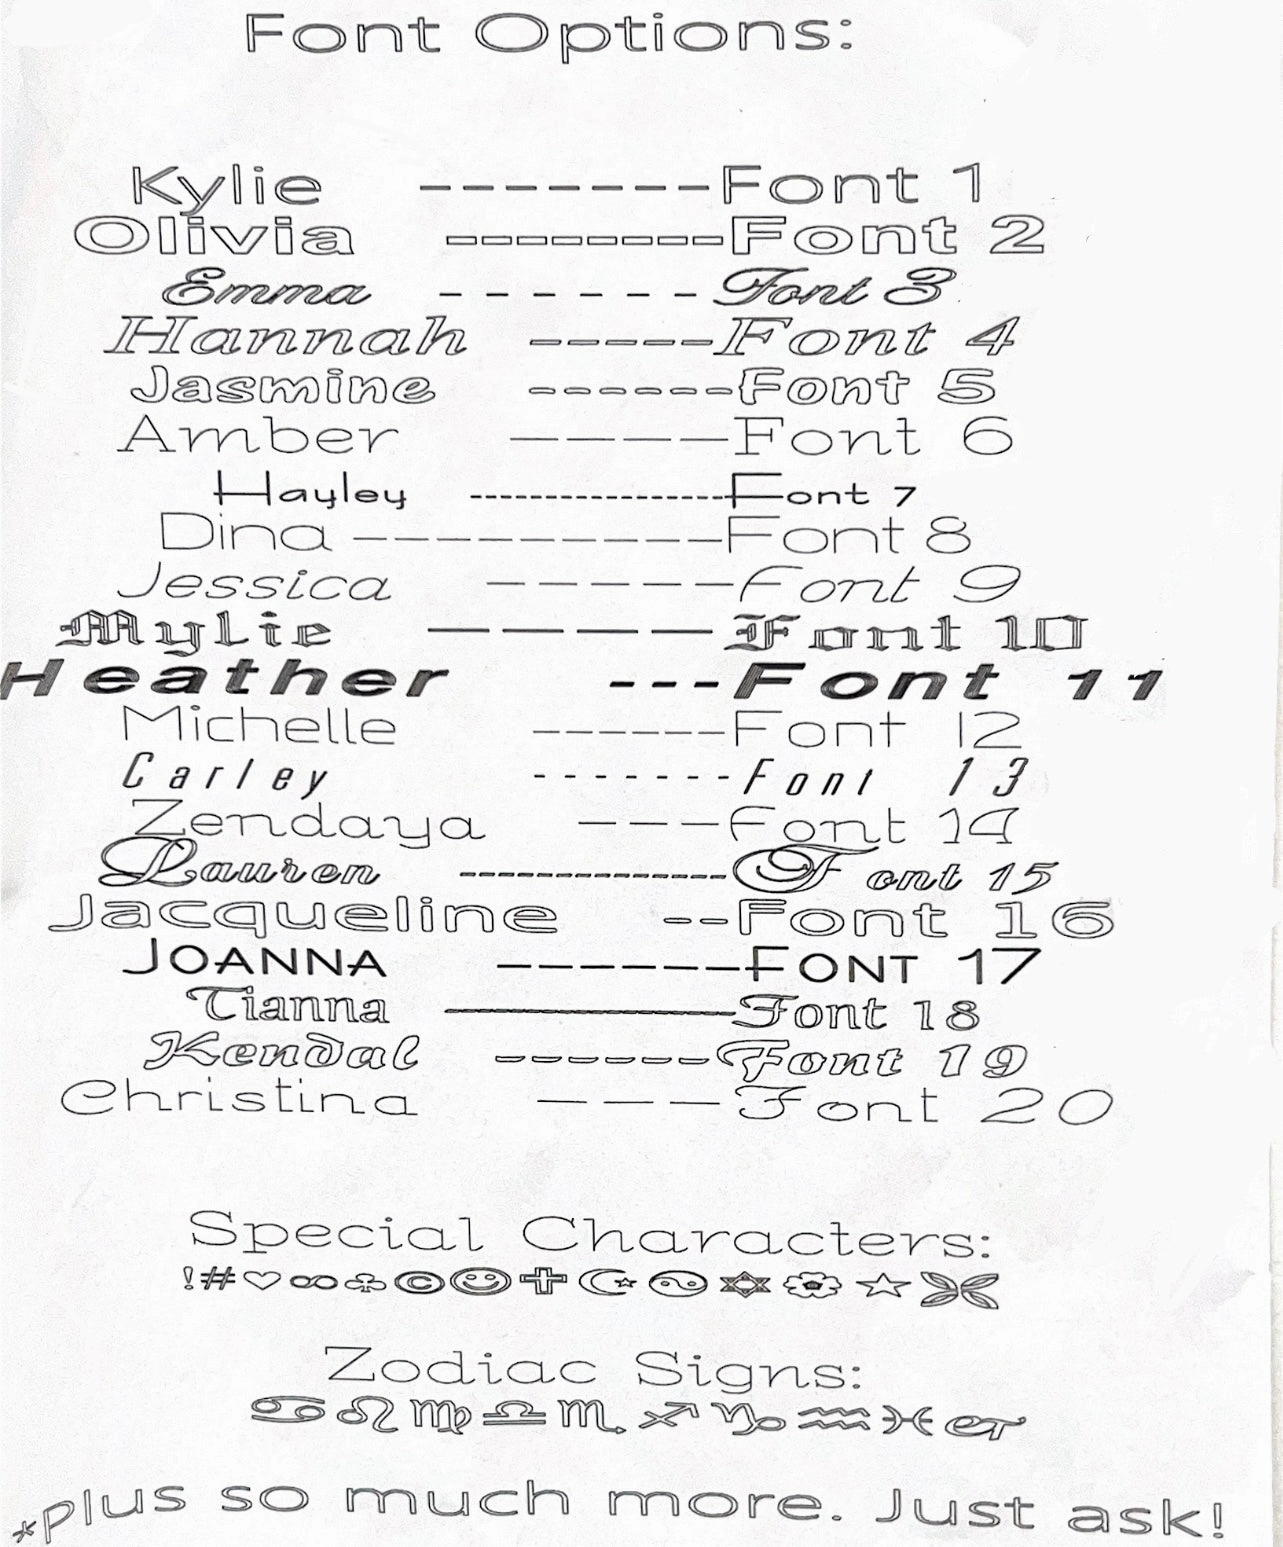 Font Options:
Kylie -------Font 1
Olivia --------Font 2
Emma - - - - - -Font 3
Hannah -----Font 4
Jasmine ------Font 5
Amber ----Font 6
Hayley ----------------Font 7
Dina ---------Font 8
Jessica -----Font 9
Mylie ----Font 10
Heather ---Font 11
Michelle ------Font 12
Carley -------Font 13
Zendaya ---Font 14
Lauren --------------Font 15
Jacqueline --Font 16
JOANNA ------FONT 17
Tianna ----------Font 18
Kendal ------Font 19
Christina ---Font 20
Special Characters:
!#♡∞♧©☺✝☪☯✡❀☆
Zodiac Signs:
♋♌♍♎♏♐♑♒♓er
*Plus so much more. Just ask!